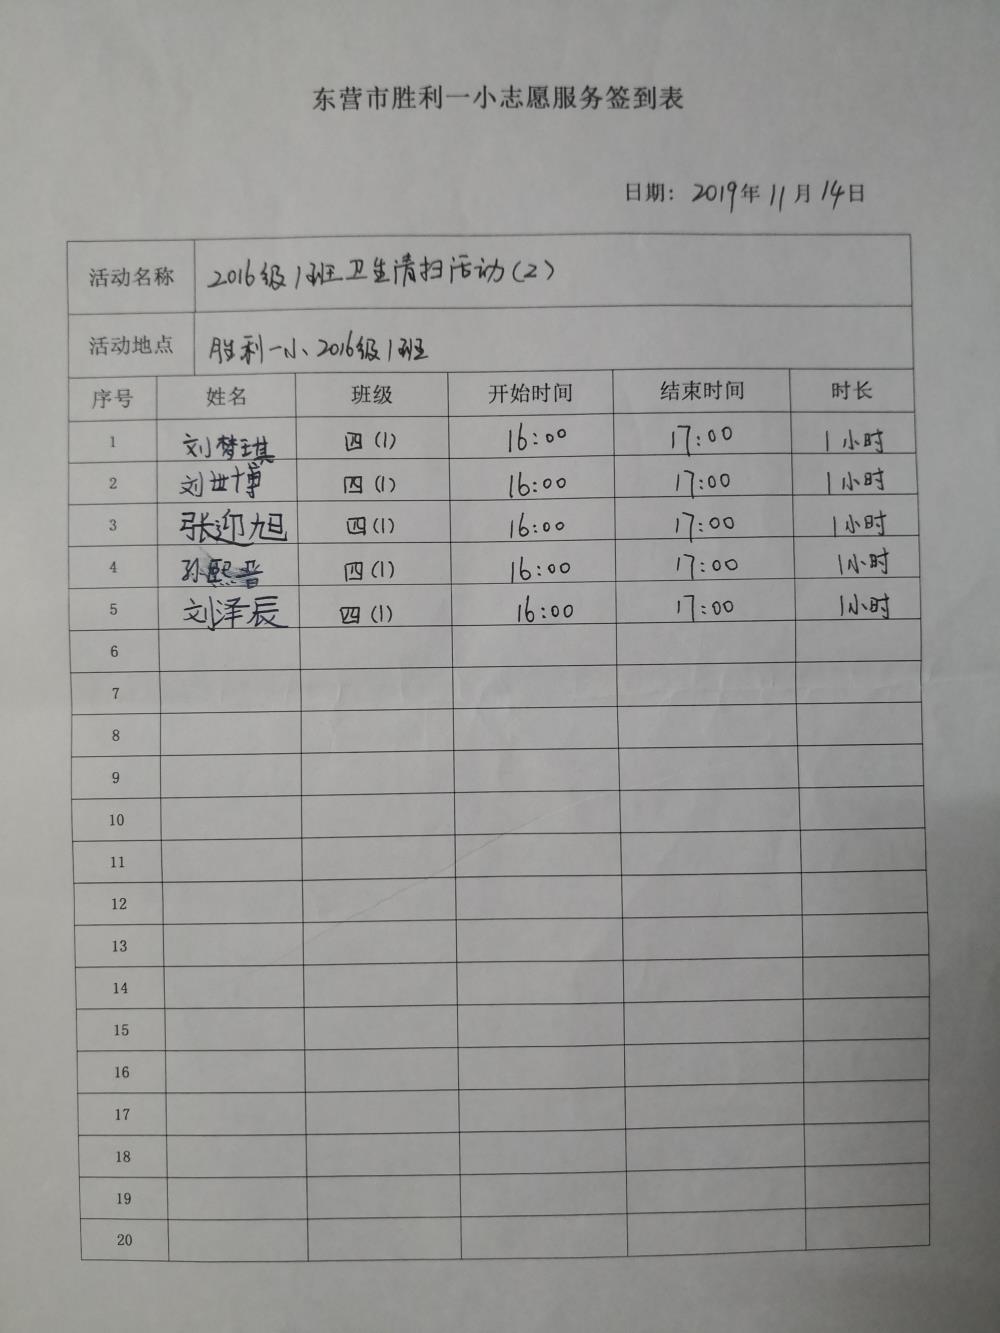 东营市胜利一小志愿服务签到表
日期：2019年11月14日
活动名称 2016级1班卫生清扫活动(2)
活动地点 胜利一小、2016级1班
序号 姓名 班级 开始时间 结束时间 时长
1 刘梦琪 四(1) 16:00 17:00 1小时
2 刘世博 四(1) 16:00 17:00 1小时
3 张迎旭 四(1) 16:00 17:00 1小时
4 孙熙晋 四(1) 16:00 17:00 1小时
5 刘泽辰 四(1) 16:00 17:00 1小时
6
7
8
9
10
11
12
13
14
15
16
17
18
19
20